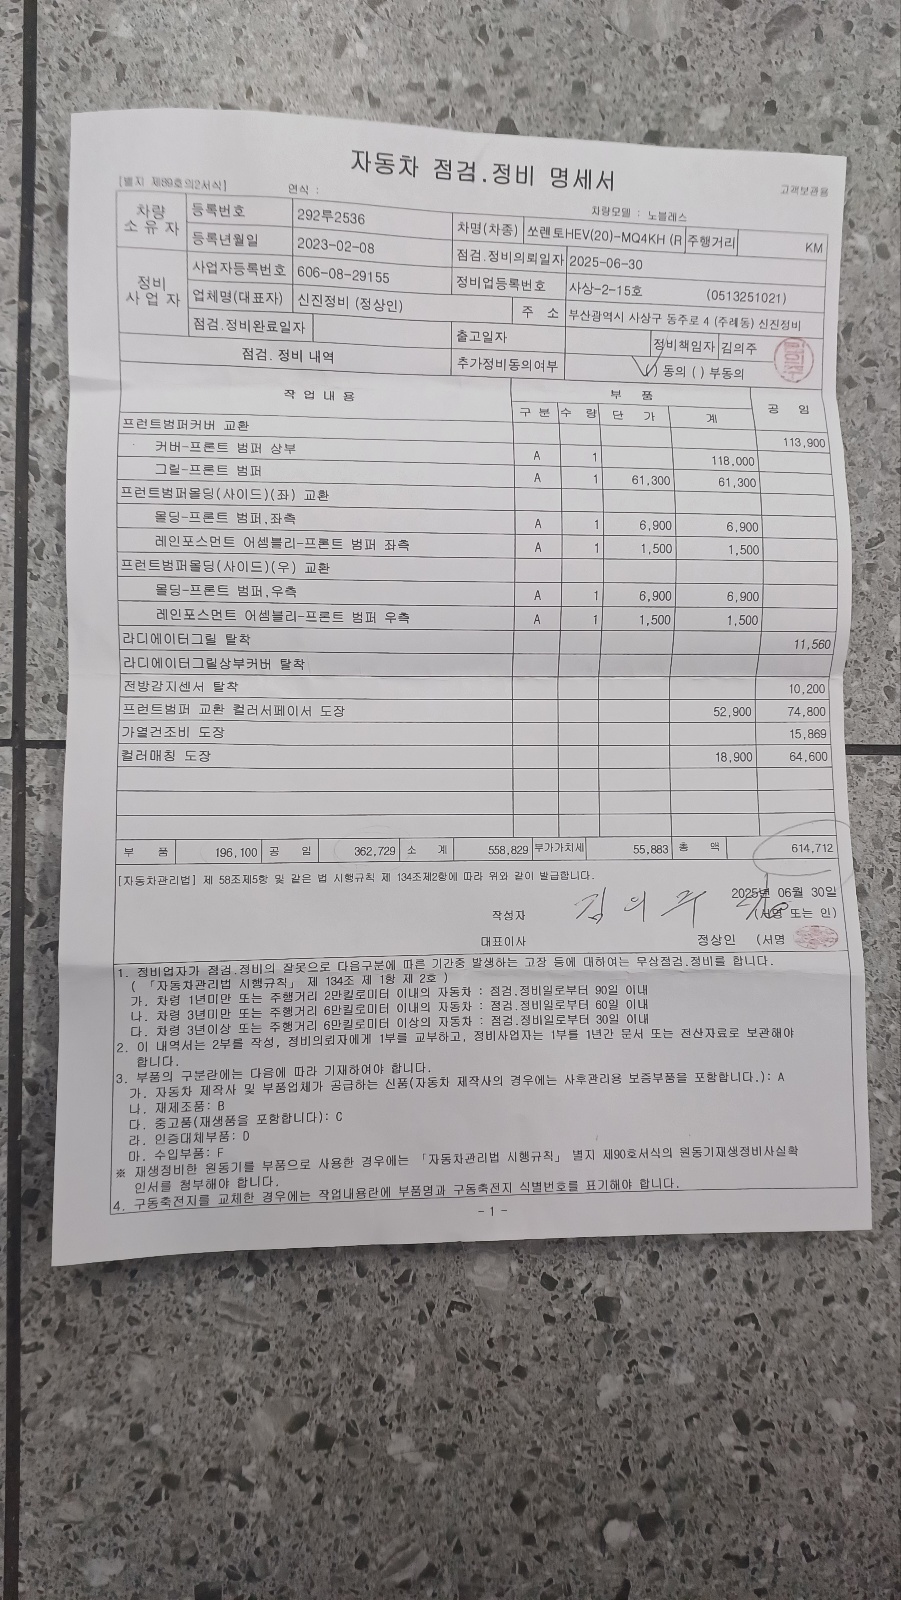 자동차 점검.정비 명세서
[별지 제89호의2서식] 연식 : 차량모델 : 노블레스 고객보관용
차량 소유자 등록번호 292루2536 차명(차종) 쏘렌토HEV(20)-MQ4KH (R 주행거리 KM
등록년월일 2023-02-08 점검.정비의뢰일자 2025-06-30
정비 사업자 사업자등록번호 606-08-29155 정비업등록번호 사상-2-15호 (0513251021)
업체명(대표자) 신진정비 (정상인) 주 소 부산광역시 사상구 동주로 4 (주례동) 신진정비
점검.정비완료일자 출고일자 정비책임자 김의주
점검. 정비 내역 추가정비동의여부 (√) 동의 ( ) 부동의
작 업 내 용 부 품 공 임
구 분 수 량 단 가 계
프런트범퍼커버 교환 113,900
커버-프론트 범퍼 상부 A 1 118,000
그릴-프론트 범퍼 A 1 61,300 61,300
프런트범퍼몰딩(사이드)(좌) 교환
몰딩-프론트 범퍼,좌측 A 1 6,900 6,900
레인포스먼트 어셈블리-프론트 범퍼 좌측 A 1 1,500 1,500
프런트범퍼몰딩(사이드)(우) 교환
몰딩-프론트 범퍼,우측 A 1 6,900 6,900
레인포스먼트 어셈블리-프론트 범퍼 우측 A 1 1,500 1,500
라디에이터그릴 탈착 11,560
라디에이터그릴상부커버 탈착
전방감지센서 탈착 10,200
프런트범퍼 교환 컬러서페이서 도장 52,900 74,800
가열건조비 도장 15,869
컬러매칭 도장 18,900 64,600
부 품 196,100 공 임 362,729 소 계 558,829 부가가치세 55,883 총 액 614,712
[자동차관리법] 제 58조제5항 및 같은 법 시행규칙 제 134조제2항에 따라 위와 같이 발급합니다.
2025년 06월 30일
작성자 김 의 주 (서명 또는 인)
대표이사 정상인 (서명
1. 정비업자가 점검.정비의 잘못으로 다음구분에 따른 기간중 발생하는 고장 등에 대하여는 무상점검.정비를 합니다.
( 「자동차관리법 시행규칙」 제 134조 제 1항 제 2호 )
가. 차령 1년미만 또는 주행거리 2만킬로미터 이내의 자동차 : 점검.정비일로부터 90일 이내
나. 차령 3년미만 또는 주행거리 6만킬로미터 이내의 자동차 : 점검.정비일로부터 60일 이내
다. 차령 3년이상 또는 주행거리 6만킬로미터 이상의 자동차 : 점검.정비일로부터 30일 이내
2. 이 내역서는 2부를 작성, 정비의뢰자에게 1부를 교부하고, 정비사업자는 1부를 1년간 문서 또는 전산자료로 보관해야
합니다.
3. 부품의 구분란에는 다음에 따라 기재하여야 합니다.
가. 자동차 제작사 및 부품업체가 공급하는 신품(자동차 제작사의 경우에는 사후관리용 보증부품을 포함합니다.): A
나. 재제조품: B
다. 중고품(재생품을 포함합니다): C
라. 인증대체부품: D
마. 수입부품: F
※ 재생정비한 원동기를 부품으로 사용한 경우에는 「자동차관리법 시행규칙」 별지 제90호서식의 원동기재생정비사실확
인서를 첨부해야 합니다.
4. 구동축전지를 교체한 경우에는 작업내용란에 부품명과 구동축전지 식별번호를 표기해야 합니다.
- 1 -